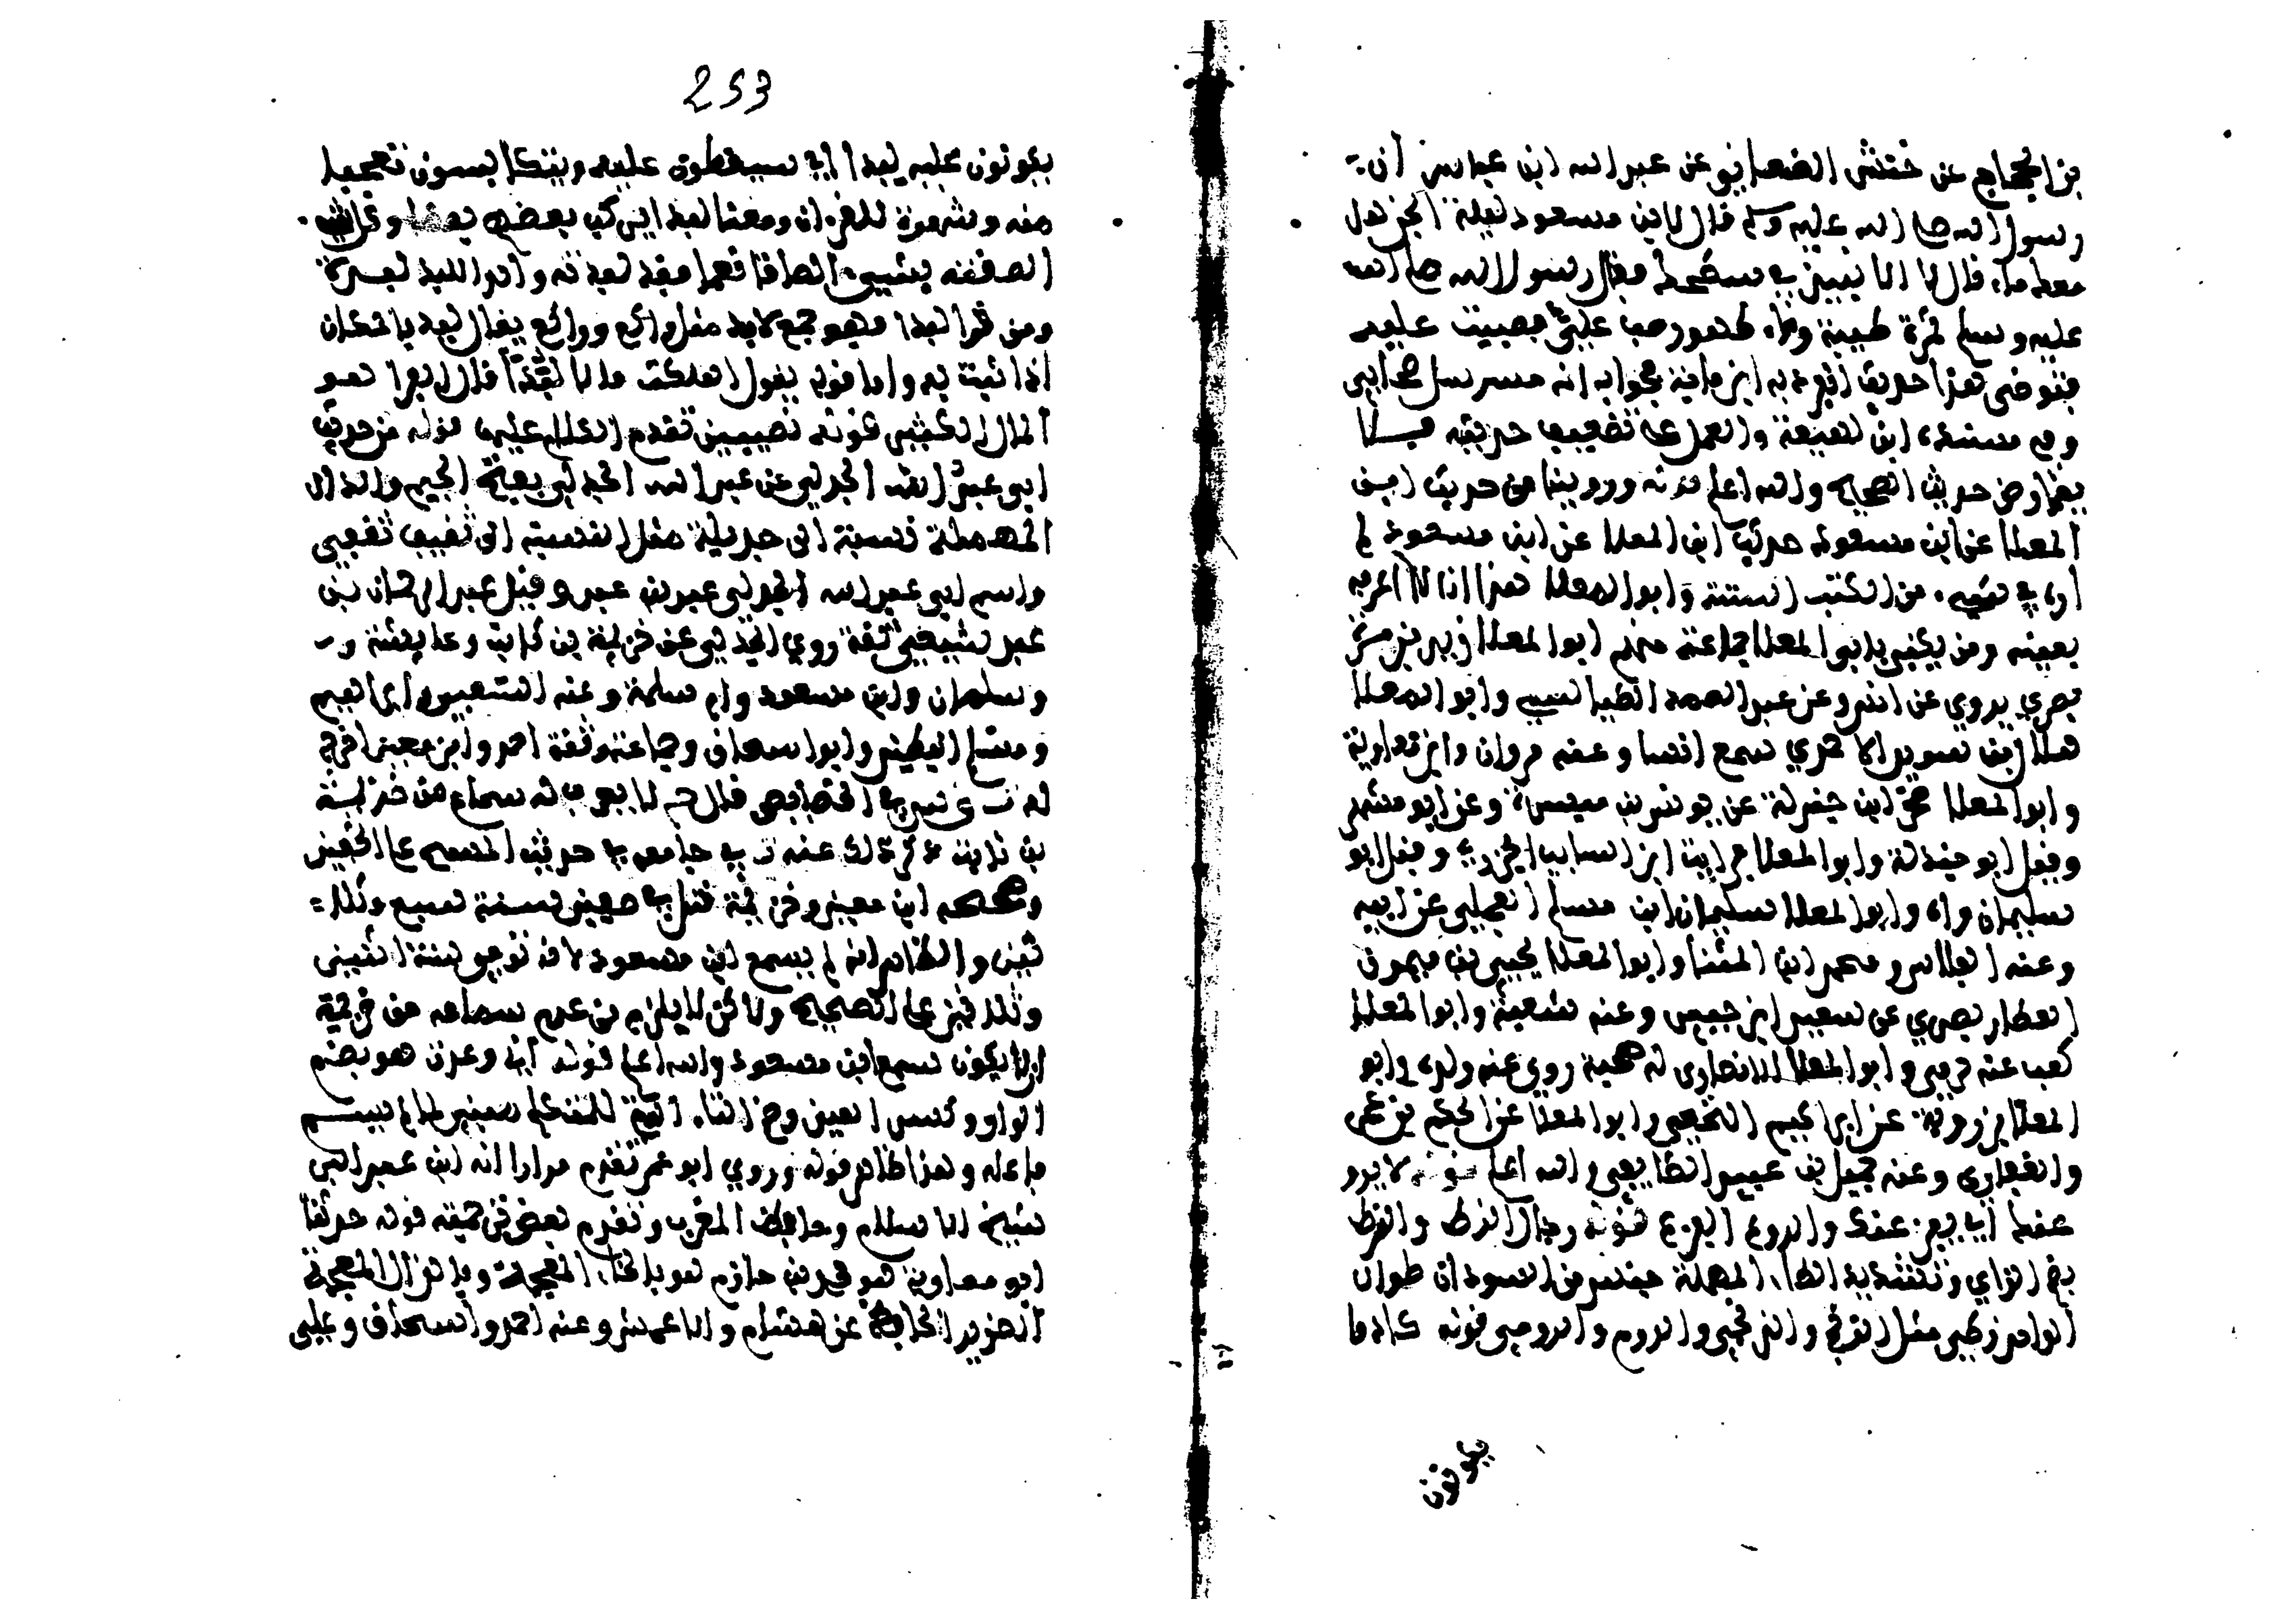 بن الحجاج عن حنش الصنعاني عن عبد الله ابن عباس ان
رسول الله صلى الله عليه وسلم قال لابن مسعود ليلة الجن هل
معك ماء قال لا الا نبيذ في سطيحة فقال رسول الله صلى الله
عليه وسلم تمرة طيبة وماء طهور صب علي فصببت عليه
فتوضى هذا حديث انفرد به ابن ماجة بجوابه انه مرسل صحابي
وفي مسنده ابن لهيعة والعمل على تضعيف حديثه فلا
يعارض حديث الصحيح والله اعلم قوله وروينا من حديث ابي
المعلا عن ابن مسعود حديث ابن المعلا عن ابن مسعود لم
اره في شيء من الكتب الستة وابو المعلا هذا انا لا اعرفه
بعينه ومن يكنى بابو المعلا جماعة منهم ابو المعلا زيد بن مرة
بصري يروي عن انس وعن عبد الصمد الطيالسي وابو المعلا
هلال بن سويد الاحمري سمع انسا وعنه مروان وابن معاوية
وابو المعلا صخر ابن جندلة عن يونس بن ميسرة وعن ابو مسهر
وقيل ابو جندلة وابو المعلا فرات ابن السايب الجزري وقيل ابو
سليمان وابو المعلا سليمان ابن مسلم العجلي عن ابيه
وعنه الفلاس ومحمد ابن المثنا وابو المعلا يحيى بن ميمون
العطار بصري عن سعيد ابن جبير وعنه شعبة وابو المعلا
وابو المعلا الانصاري له صحبة روى عنه ولده وابو
المعلا بن رؤبة عن ابراهيم النخعي وابو المعلا عن الحكم بن عمر
والغفاري وعنه جميل بن عبيد الطايي والله اعلم قوله لا يرد
عنها قوله رجال الزط والزط
بضم الزاي وتشديد الطاء المهملة جنس من السودان طوال
الواحد زطي مثل الزنج والزنجي والروم والرومي قوله كادوا
يكونون
253
يكونون عليه لبدا اي سيخطون عليه ويتكالبسون تعجبا
منه وشهوة للقرءان ومعنا لبدا يركب بعضهم بعضا وكل شيء
الصقته بشيء الصاقا نعما فقد لبدته
ومن قرا لبدا فهو جمع لابد مثل راكع وركع يقال لبد بالمكان
اذا ثبت به واما قوله يقول اهلكت مالا لبدا قال الفرا هو
المال الكثير قوله نصيبين تقدم الكلام عليها قوله من حديث
ابي عبد الله الجدلي عن عبد الله الجدلي بفتح الجيم والدال
المهملة نسبة الى جديلة مثل النسبة الى ثقيف ثقفي
واسم ابي عبد الله الجدلي عبد بن عبد وقيل عبد الرحمان بن
عبد شيعي ثقة روي الجدلي عن خزيمة بن ثابت وعايشة
وسلمان وابن مسعود وام سلمة وعنه الشعبي وابراهيم
ومسلم البطين وابو اسحاق وجماعة وثقه احمد وابن معين اخرج
له د ت س في الخصايص قال خ لا يعرف له سماع من خزيمة
بن ثابت ذكر ذلك عنه ت في جامعه في حديث المسح على الخفين
وصححه ابن معين وخزيمة قتل في صفين سنة سبع وثلا
ثين والظاهر انه لم يسمع ابن مسعود لانه توفي سنة اثنين
وثلاثين على الصحيح ولاكن لا يلزم من عدم سماعه من خزيمة
الا يكون سمع ابن مسعود والله اعلم قوله وعدت هو بضم
الواو وكسر العين وضم التاء التي للمتكلم مبني لما لم يسم
فاعله وهذا ظاهر قوله وروي ابو عمر تقدم مرارا انه ابن عبد البر
شيخ الاسلام وحافظ المغرب وتقدم بعض ترجمته قوله حدثنا
ابو معاوية هو محمد بن خازم هو بالخاء المعجمة وبالزاي المعجمة
الضرير الحافظ عن هشام والاعمش وعنه احمد واسحاق وعلي